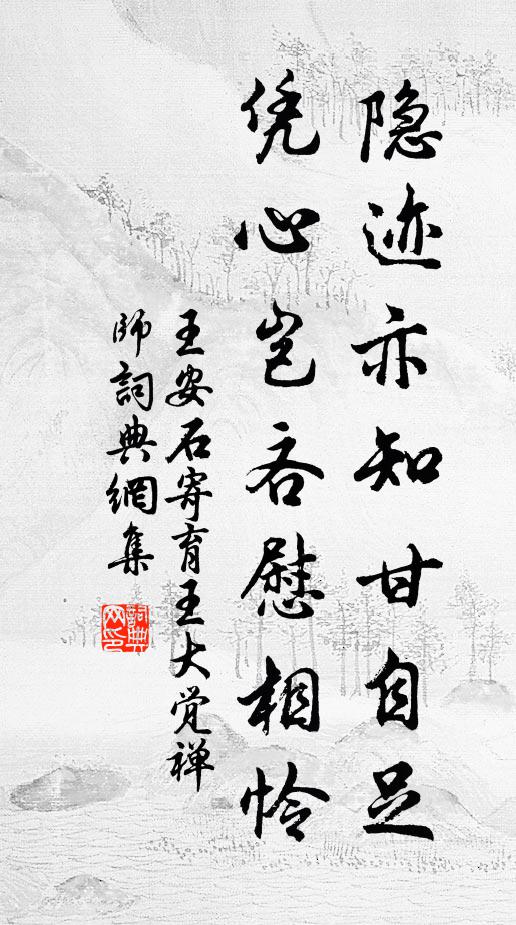 隐迹亦知甘自足
凭心岂吝慰相怜
王安石寄育王大觉禅
师詞典網集
詞典
网印